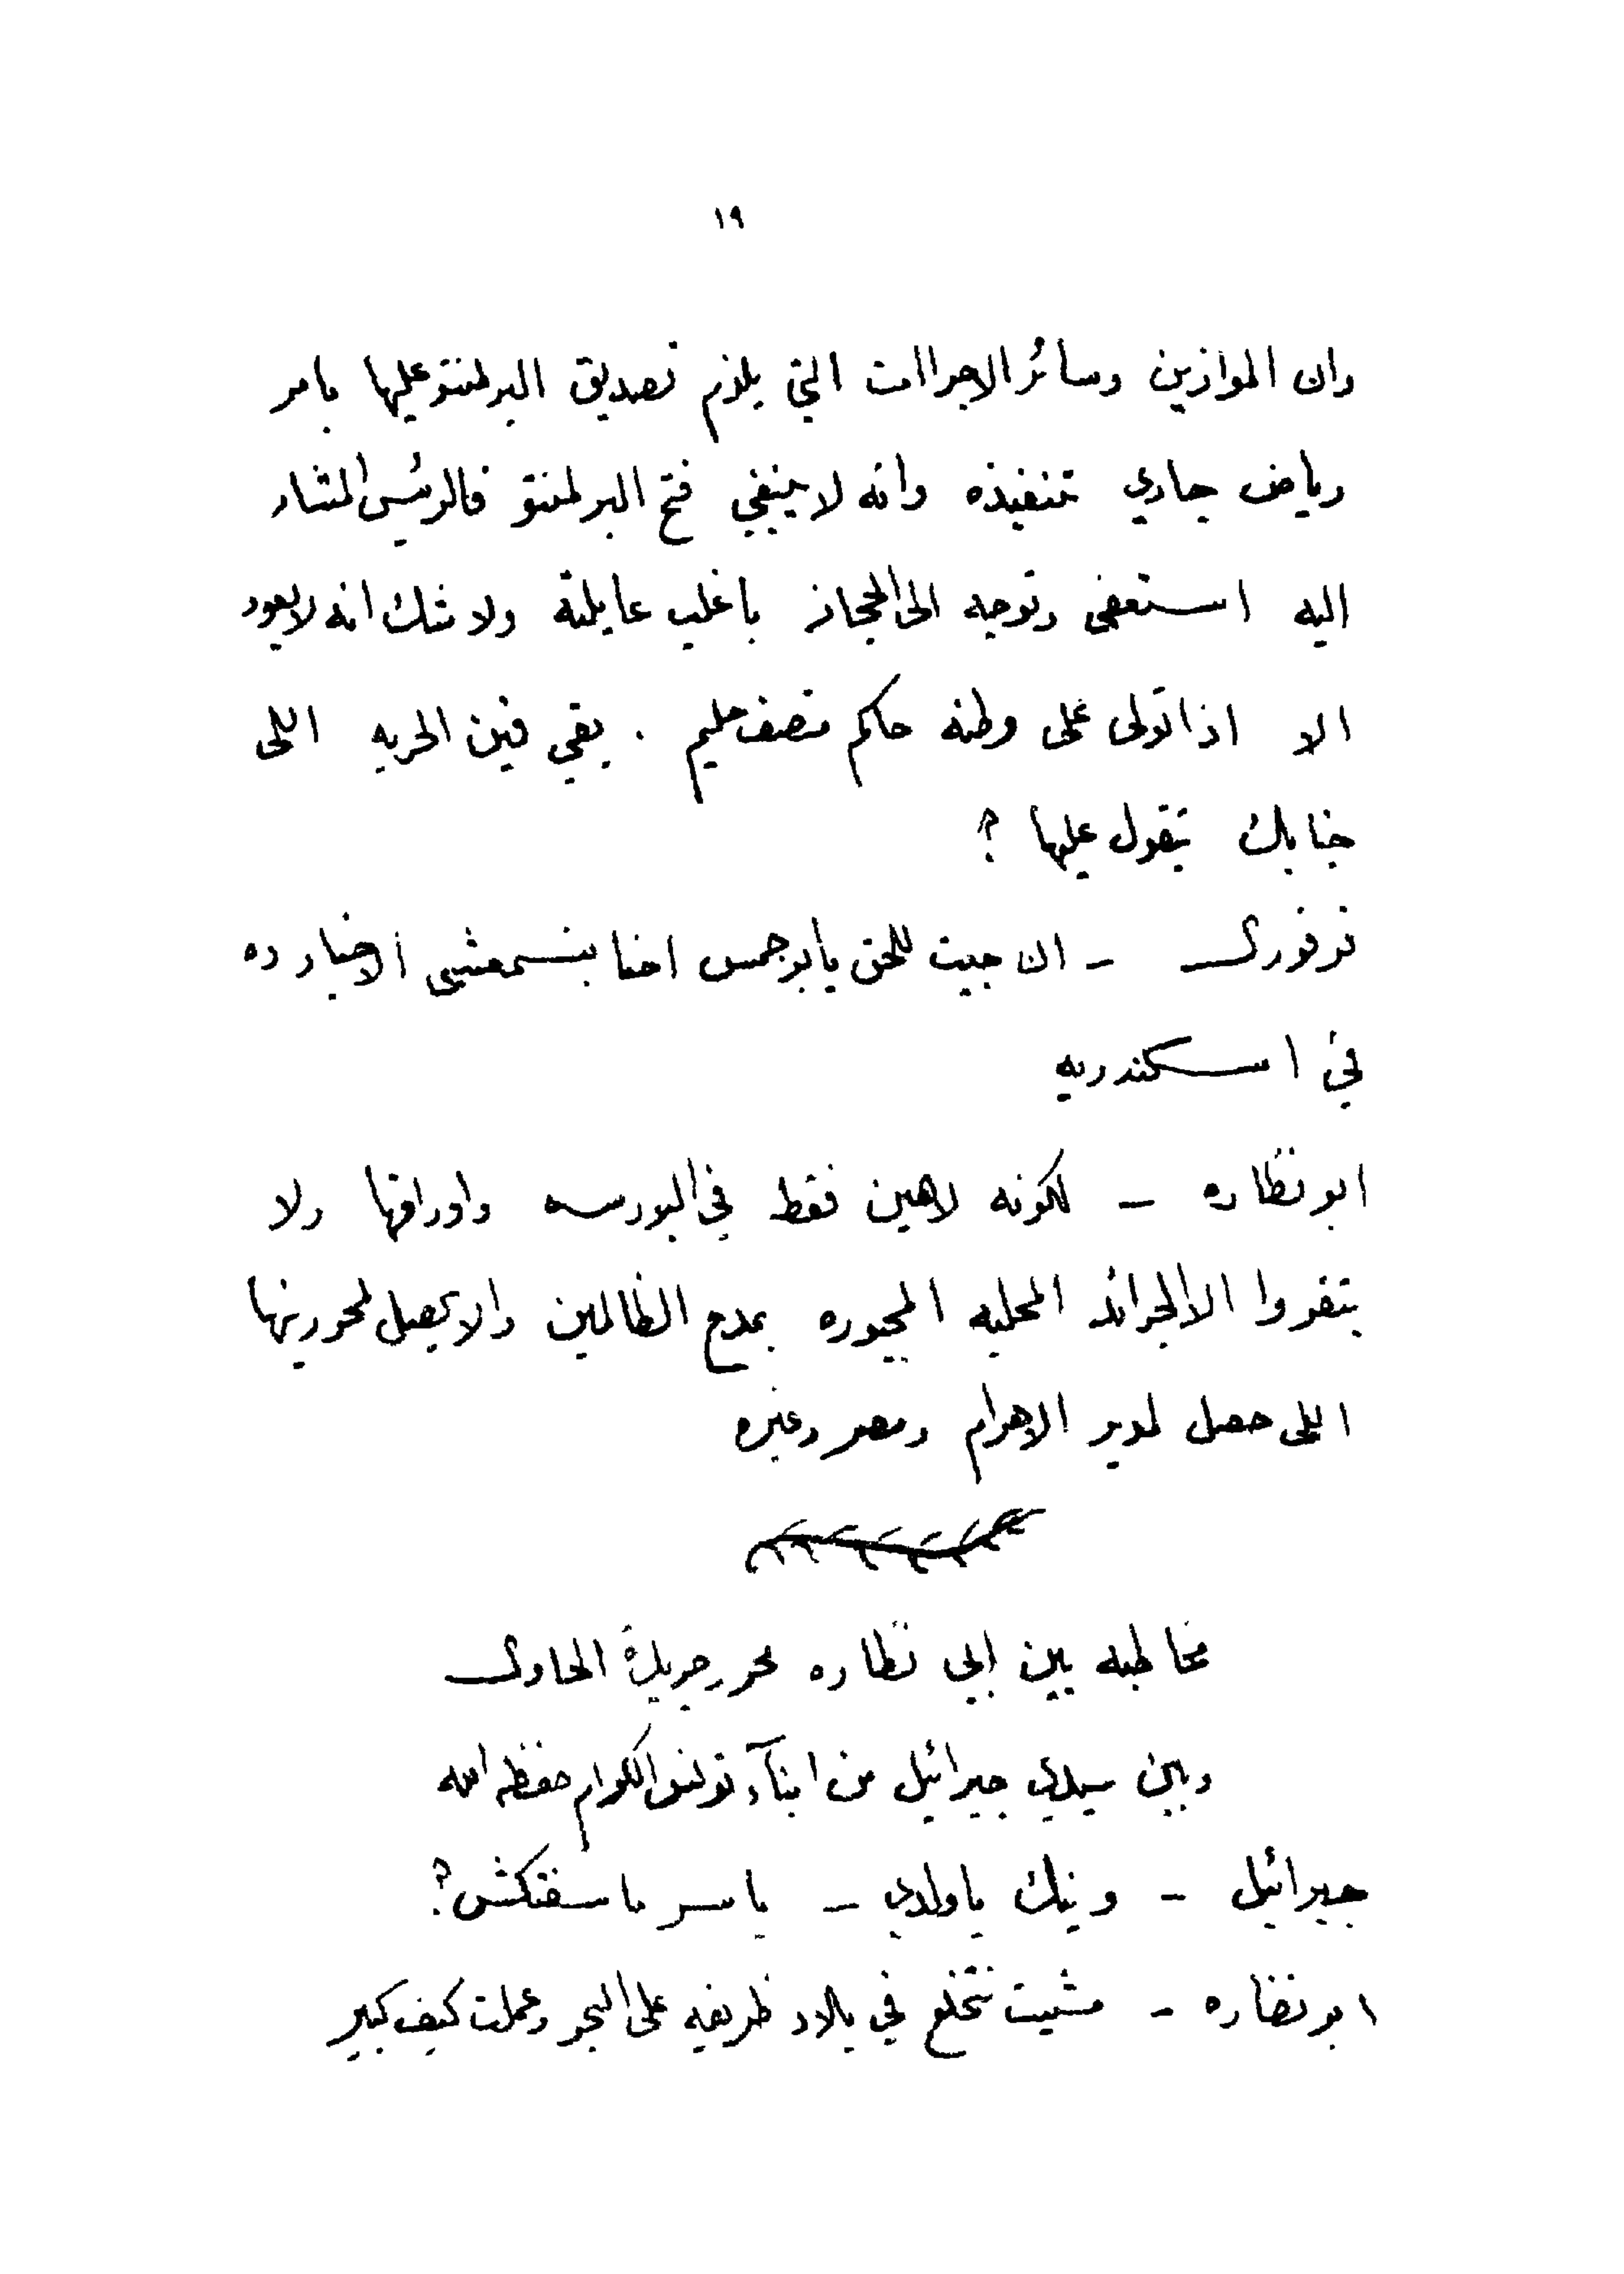 ١٩
وان الموازين وسائر الاجراات التي يلزم تصديق البرلمنتو عليها بامر
رياض جاري تنفيذه وانه لا ينبغي فتح البرلمنتو فالرئيس المشار
اليه استعفى وتوجه الى الحجاز باغلب عايلته ولا شك انه لا يعود
الا اذا تولى على وطنه حاكم منصف حليم . بقي فين الحريه اللى
جنابك تقول عليها ؟
فرفور — ان جيت للحق يابو جمس احنا بنسمعشى الاخبار ده
في اسكندريه
ابو نظاره — لكونه لاهين فقط في البورسه واوراقها ولا
بتقروا الا الجرائد المحليه المجبوره بمدح الظالمين والا يحصل لمحررينها
اللى حصل لمدير الاهرام ومصر وغيره
مخاطبه بين ابي نظاره محرر جريدة الحاوى
وبين سيدي جبرائيل من ابنآء تونس الكرام حفظه الله
جبرائيل — وينك ياولدي — ياسر ماسفتكش ؟
ابو نضاره — مشيت نتخلع في بلاد ظريفه على البحر وعملت كيف كبير